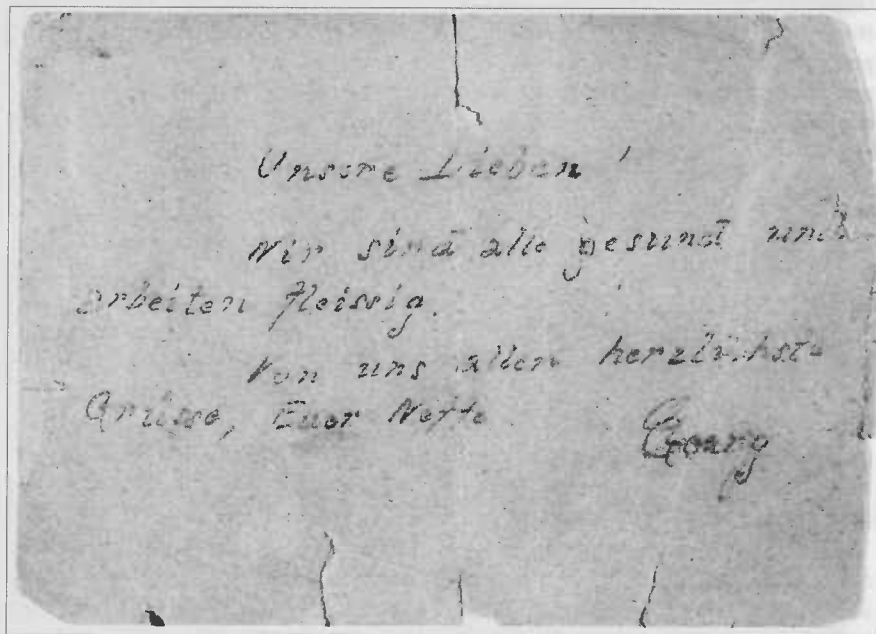 Unsere Lieben!
Wir sind alle gesund und
arbeiten fleissig.
Von uns allen herzlichste
Grüsse, Euer Neffe
Georg